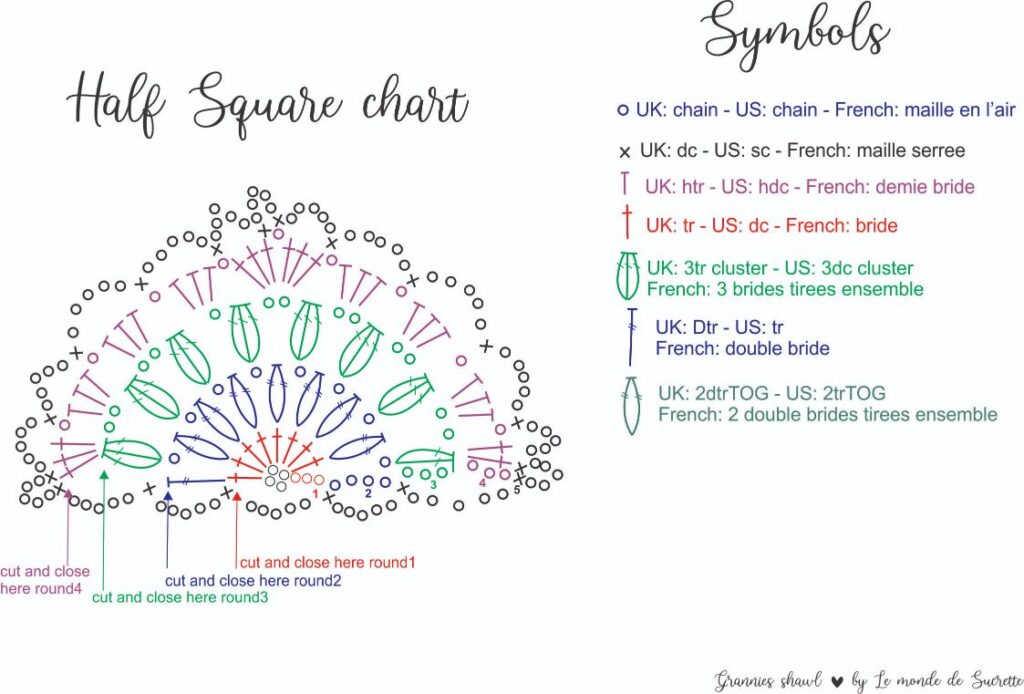 Half Square chart
1
2
3
4
5
cut and close here round1
cut and close here round2
cut and close here round3
cut and close
here round4
Symbols
UK: chain - US: chain - French: maille en l'air
UK: dc - US: sc - French: maille serree
UK: htr - US: hdc - French: demie bride
UK: tr - US: dc - French: bride
UK: 3tr cluster - US: 3dc cluster
French: 3 brides tirees ensemble
UK: Dtr - US: tr
French: double bride
UK: 2dtrTOG - US: 2trTOG
French: 2 double brides tirees ensemble
Grannies shawl ♥ by Le monde de Sucrette